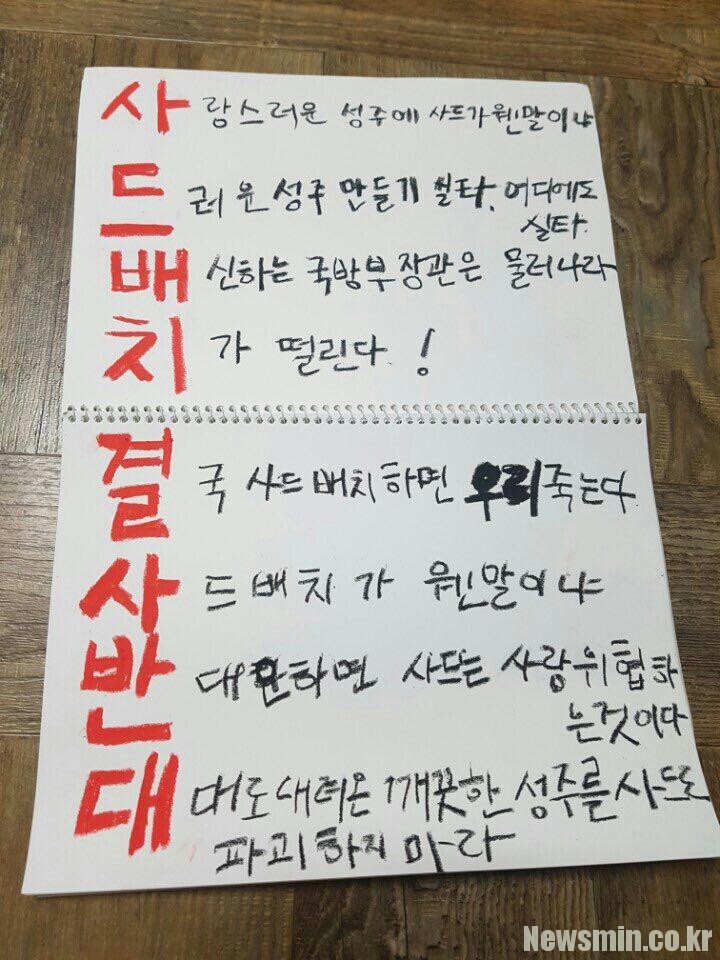 사랑스러운 성주에 사드가 웬말이냐
드러운 성주 만들기 실타. 어디에도
실타.
배신하는 국방부장관은 물러나라
치가 떨린다!
결국 사드배치하면 우리 죽는다
사드배치가 웬말이냐
반대 하면 사드는 사랑위협하
는것이다
대대로 내려온 깨끗한 성주를 사드로
파괴하지 마라
Newsmin.co.kr